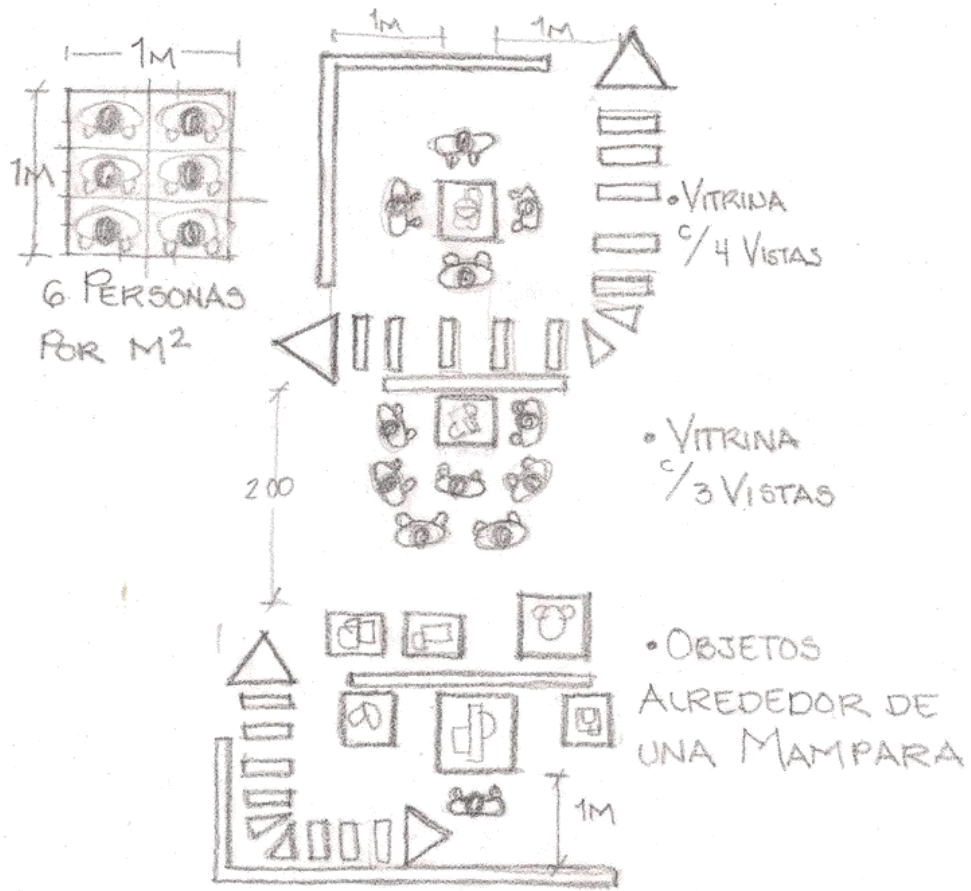 1M
1M
6 PERSONAS
POR M²
1M
1M
• VITRINA
c/4 VISTAS
200
• VITRINA
c/3 VISTAS
• OBJETOS
ALREDEDOR DE
UNA MAMPARA
1M